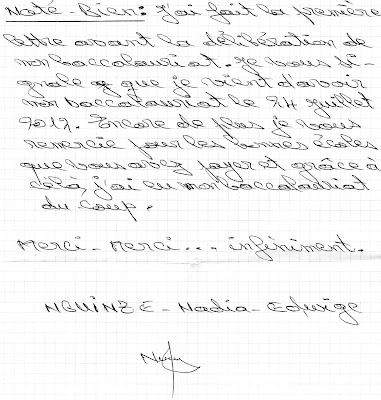 Noté-Bien: J'ai fait la première
lettre avant la délibération de
mon baccalauriat. Je vous si-
gnale q que je vient d'avoir
mon baccalauriat le 24 Juillet
2017. Encore de plus je vous
remercie pour les bonnes écoles
que vous avez payer et grâce à
cèlà, j'ai eu mon baccalauriat
du coup.
Merci-Merci... infiniment.
NGUINZE-Nadia-Edwige